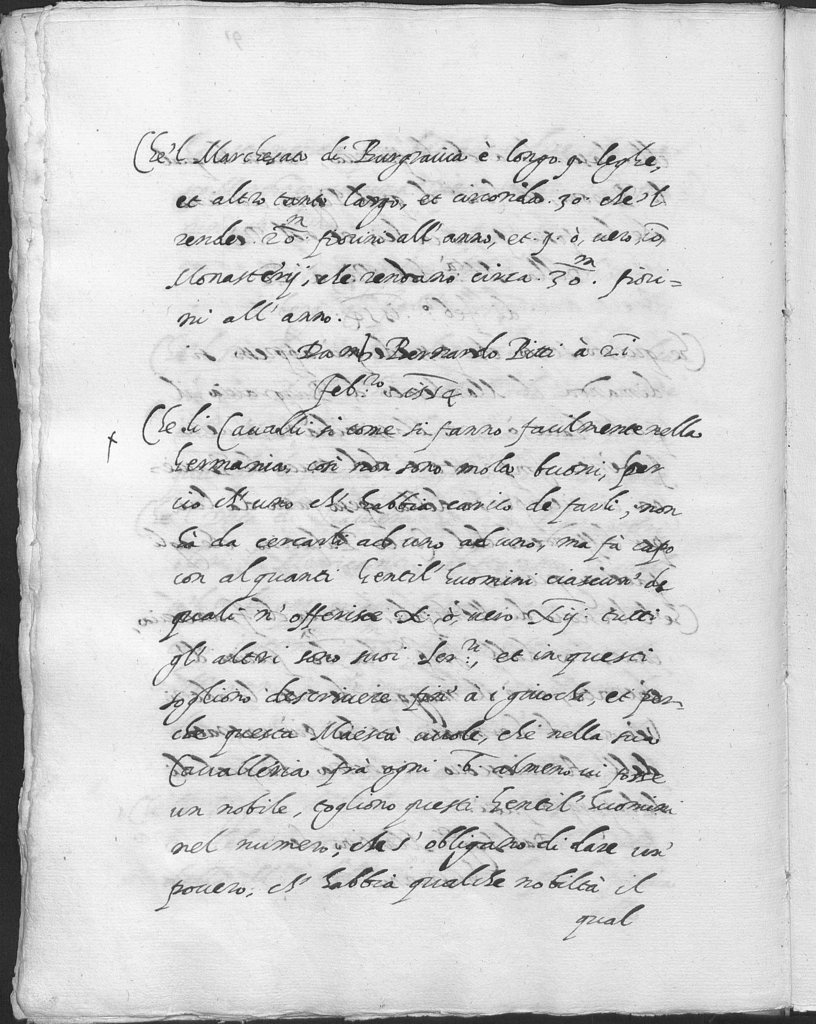 Che'l Marchesato di Burgravia è longo 9. leghe,
et altro tanto largo, et circonda .30. che'l
rende .20.m fiorini all'anno, et .9. ò, vero .10.
Monasterij, che rendano circa .30.m fiori=
ni all'anno.
Da m. Bernardo Pitti à 21
Feb.ro 1554
Che li Cavalli si come si fanno facilmente nella
Germania, così non sono molto buoni, per
ciò ch'uno ch'habbia carico de farli, non
hà da cercarli ad uno ad uno, ma fà capo
con alquanti Gentil'huomini ciascun' de
quali n'offerisce X. ò, vero Xij tutti
gl'altri sono suoi Ser.ri, et in questi
sogliono descrivere fin' a i cuochi, et per-
che questa Maestà vuole, che nella sua
Cavalleria frà ogni 6. almeno vi fosse
un nobile, togliono questi Gentil'huomini
nel numero, che s'obligano di dare un'
povero, ch'habbia qualche nobiltà il
qual